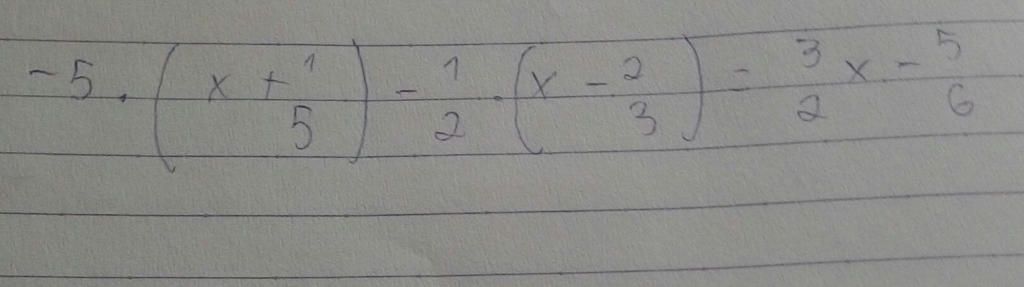 -5 · (x + 1/5) - 1/2 · (x - 2/3) = 3/2 x - 5/6